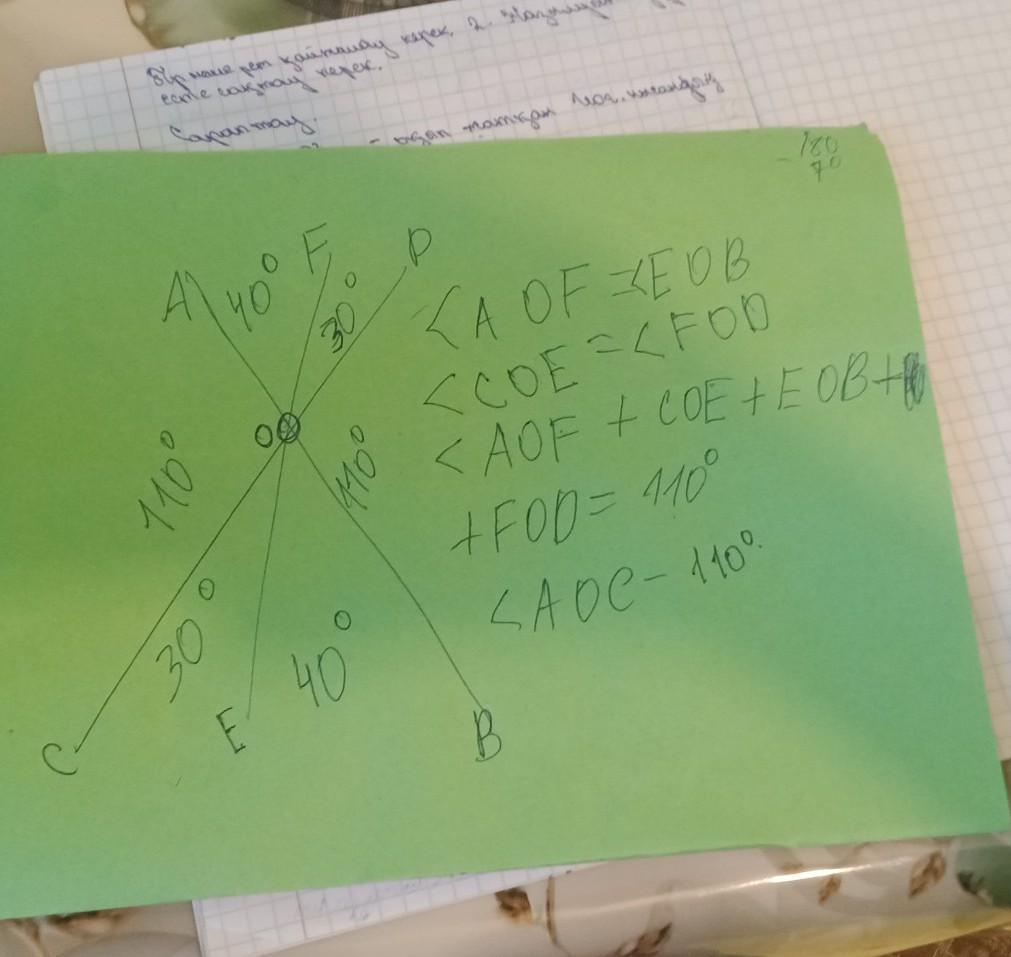 Бір неше рет қайталау керек. 2.
есте сақтау керек.
Сараптау.
- 180
70
A 40° F 30° D
O
110° 110°
30° 40°
C E B
<AOF =<EOB
<COE = <FOD
<AOF + COE + EOB +
+FOD = 110°
<AOC - 110°.